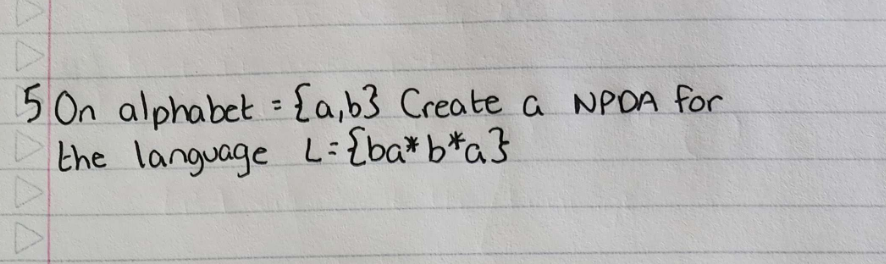 5 On alphabet = {a,b} Create a NPDA for
the language L = {ba*b*a}